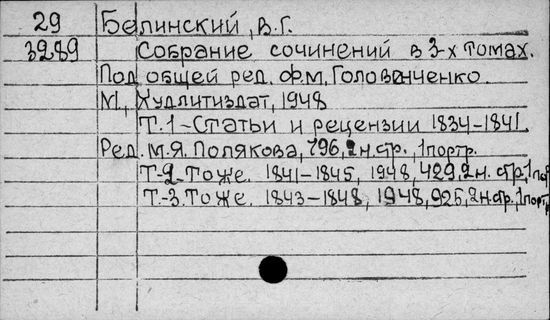 29 Белинский, В.Г.
3289 Собрание сочинений в 3-х томах.
Под общей ред. Ф.М. Головенченко.
М., Худлитиздат, 1948
Т.1-Статьи и рецензии 1834-1841.
Ред. М.Я. Полякова, 796, 2 н.стр., 1 портр.
Т-2-Тоже. 1841-1845, 1948, 429, 2 н. стр., 1 порт
Т.-3-Тоже. 1843-1848, 1948, 925, 2 н.стр., 1 портр